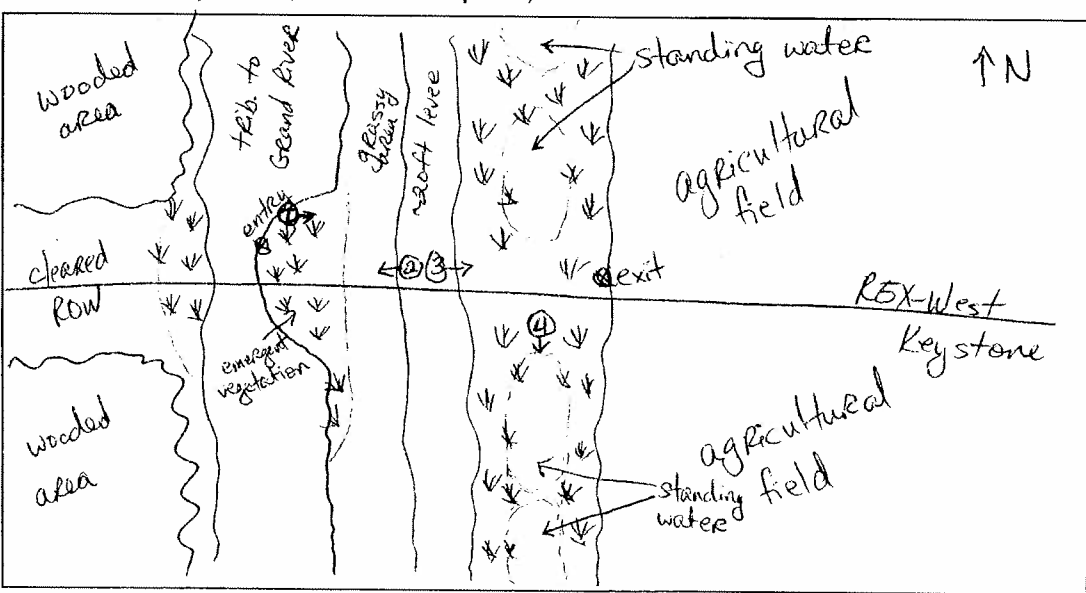 wooded
area
trib. to
Grand River
grassy
~20ft levee
standing water
↑N
agricultural
field
entry
1
cleared
ROW
2 3
exit
REX-West
Keystone
4
emergent
vegetation
wooded
area
agricultural
field
standing
water